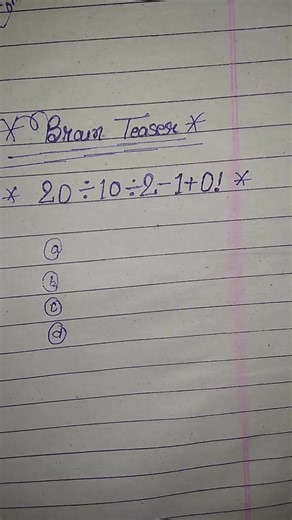 * Brain Teaser *
* 20÷10÷2-1+0! *
a
b
c
d